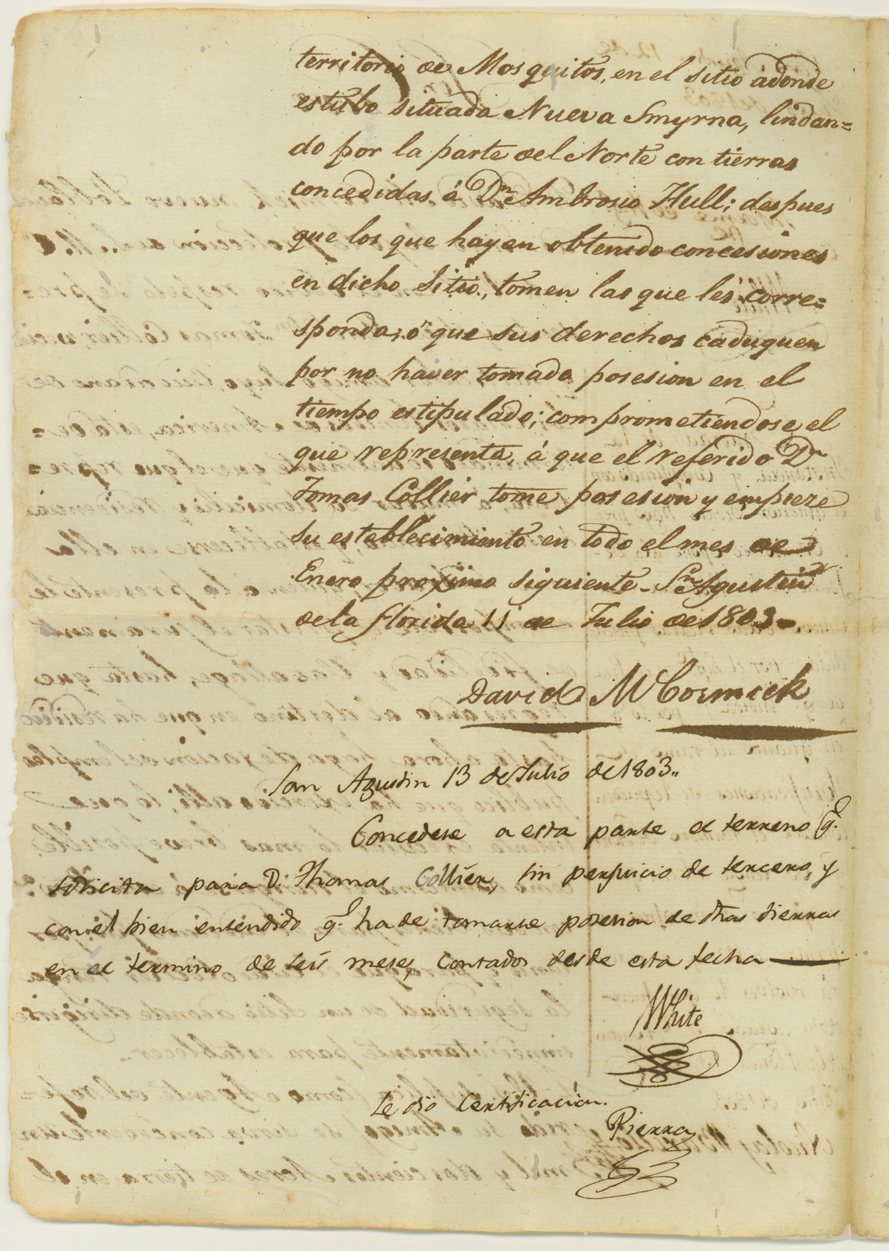 territorio de Mosquitos, en el sitio adonde
estubo situada Nueva Smyrna, lindan=
do por la parte del Norte con tierras
concedidas á Dn. Ambrosio Hull; despues
que los que hayan obtenido concesiones
en dicho Sitio, tomen las que les corre=
sponda; ó que sus derechos caduquen
por no haver tomado posesion en el
tiempo estipulado; comprometiendose, el
que representa, á que el referido Dn
Tomas Collier tome posesion y empieze
su establecimiento en todo el mes de
Enero proximo siguiente - Sn. Agustin
de la florida 11 de Julio de 1803 -
David McCormick
San Agustin 13 de Julio de 1803..
Concedese a esta parte el terreno q.e
solicita para Dn. Thomas Collier, sin perjuicio de tercero, y
con el bien entendido q.e ha de tomarse posesion de dhas tierras
en el termino de seis meses contados desde esta fecha
White
Se dio Certificacion.
Pierra